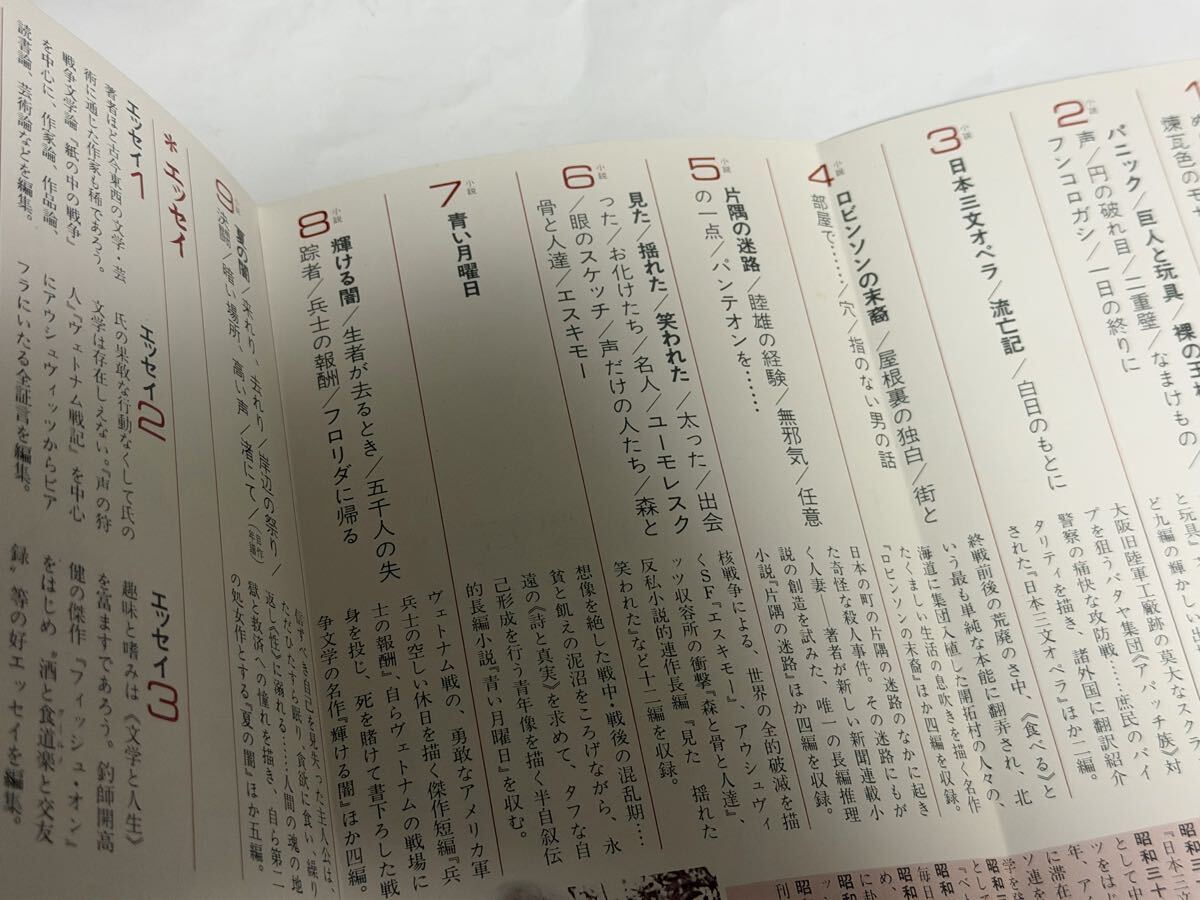 1
煉瓦色のモザ
パニック／巨人と玩具／裸の王
2
小説
声／円の破れ目／二重壁／なまけもの／
フンコロガシ／一日の終りに
と玩具』
ど九編の輝や
大阪旧陸軍工廠跡の莫大なスクラ
プを狙うバタヤ集団《アパッチ族》対
警察の痛快な攻防戦……庶民のバイ
タリティを描き、諸外国に翻訳紹介
された『日本三文オペラ』ほか二編。
3
小説
日本三文オペラ／流亡記／白日のもとに
終戦前後の荒廃のさ中、《食べる》と
いう最も単純な本能に翻弄され、北
海道に集団入植した開拓村の人々の、
たくましい生活の息吹きを描く名作
『ロビンソンの末裔』ほか四編を収録。
4
小説
ロビンソンの末裔／屋根裏の独白／街と
部屋で……／穴／指のない男の話
日本の町の片隅の迷路のなかに起き
た奇怪な殺人事件。その迷路にもが
く人妻―著者が新しい新聞連載小
説の創造を試みた、唯一の長編推理
小説『片隅の迷路』ほか四編を収録。
5
小説
片隅の迷路／睦雄の経験／無邪気／任意
の一点／パンテオンを……
核戦争による、世界の全的破滅を描
くSF『エスキモー』、アウシュヴィ
ッツ収容所の衝撃『森と骨と人達』、
反私小説的連作長編『見た　揺れた
笑われた』など十二編を収録。
6
小説
見た／揺れた／笑われた／太った／出会
った／お化けたち／名人／ユーモレスク
／眼のスケッチ／声だけの人たち／森と
骨と人達／エスキモー
想像を絶した戦中・戦後の混乱期…
貧と飢えの泥沼をころげながら、永
遠の《詩と真実》を求めて、タフな自
己形成を行う青年像を描く半自叙伝
的長編小説『青い月曜日』を収む。
7
小説
青い月曜日
ヴェトナム戦の、勇敢なアメリカ軍
兵士の空しい休日を描く傑作短編『兵
士の報酬』、自らヴェトナムの戦場に
身を投じ、死を賭けて書下ろした戦
争文学の名作『輝ける闇』ほか四編。
8
小説
輝ける闇／生者が去るとき／五千人の失
踪者／兵士の報酬／フロリダに帰る
信ずべき自己を見失った主人公は、
ただひたすら眠り、食欲に食い、繰り
返し《性》に溺れる……人間の魂の地
獄と救済への憧れを描き、自ら第二
の処女作とする『夏の闇』ほか五編。
9
夏の闇／来れり、去れり／岸辺の祭り／
決闘／暗い場所、高い声／渚にて／(自作年譜)
＊エッセイ
エッセイ1
著者ほど古今東西の文学・芸
術に通じた作家も稀であろう。
戦争文学論『紙の中の戦争』
を中心に、作家論、作品論、
読書論、芸術論などを編集。
エッセイ2
氏の果敢な行動なくして氏の
文学は存在しえない。『声の狩
人』『ヴェトナム戦記』を中心
にアウシュヴィッツからビア
フラにいたる全証言を編集。
エッセイ3
趣味と嗜みは《文学と人生》
を富ますであろう。釣師開高
健の傑作『フィッシュ・オン』
をはじめ“酒と食道楽と交友
録”等の好エッセイを編集。